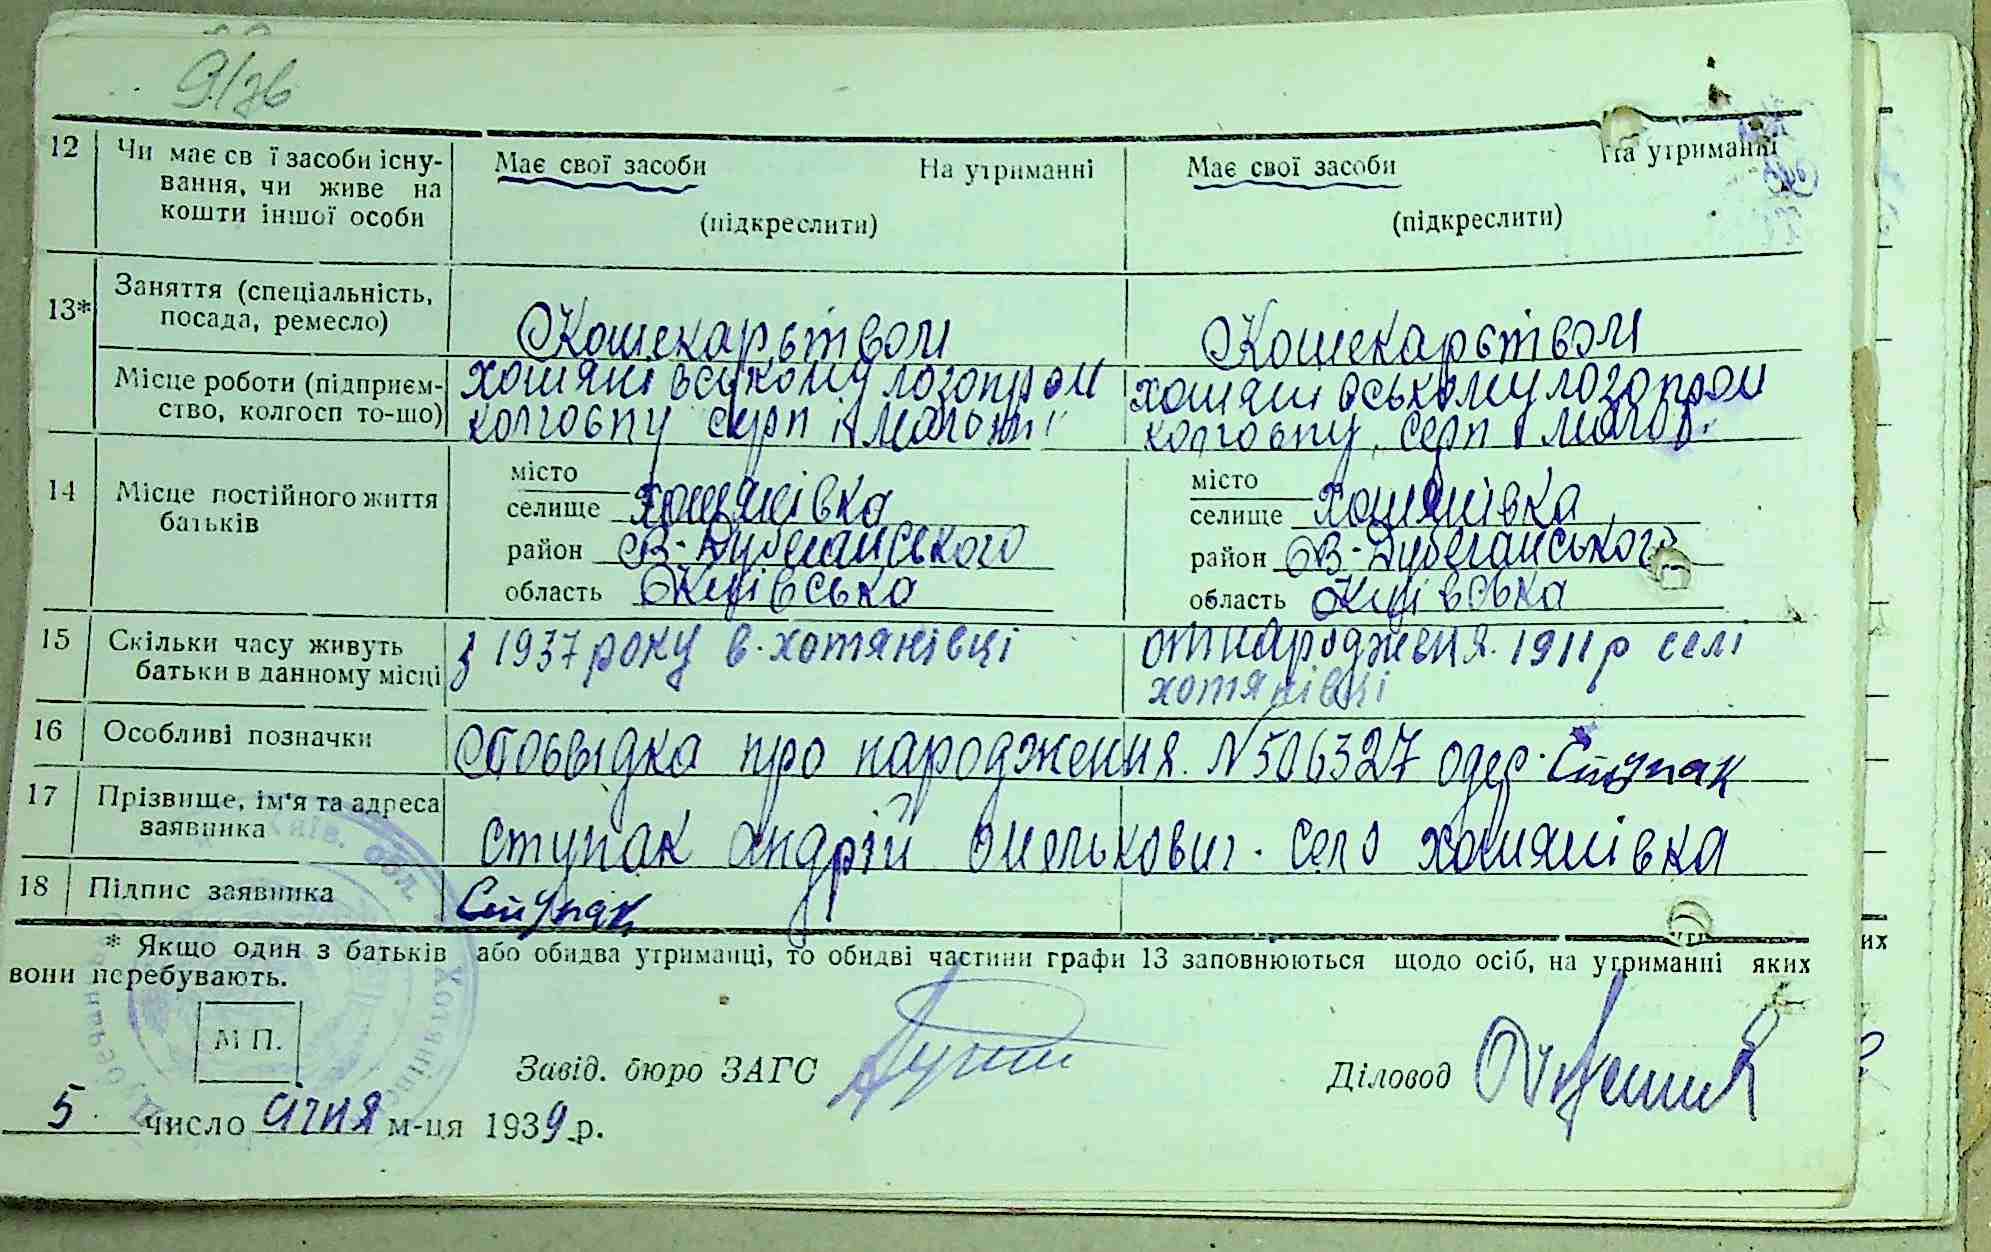 9/зв
12 Чи має св ї засоби існу- Має свої засоби На утриманні Має свої засоби На утриманні
вання, чи живе на
кошти іншої особи (підкреслити) (підкреслити)
13* Заняття (спеціальність,
посада, ремесло) Кошекарьством Кошекарьством
Місце роботи (підприєм- хотянівському лозопром хотянівському лозопром
ство, колгосп то-що) колгоспу серп і молот колгоспу серп і молот
14 Місце постійного життя
батьків
місто місто
селище хотянівка селище хотянівка
район В-Дубечанського район В-Дубечанського
область Київська область Київська
15 Скільки часу живуть з 1937 року в. хотянівці от народження. 1911 р селі
батьки в данному місці хотянівці
16 Особливі позначки Посвідка про народження. N506327 одер. Ступак
17 Прізвище, ім'я та адреса
заявника ступак андрій омелькович. село хотянівка
18 Підпис заявника Ступак
* Якщо один з батьків або обидва утриманці, то обидві частини графи 13 заповнюються щодо осіб, на утриманні яких
вони перебувають.
М П.
Завід. бюро ЗАГС Діловод
5 число січня м-ця 1939 р.